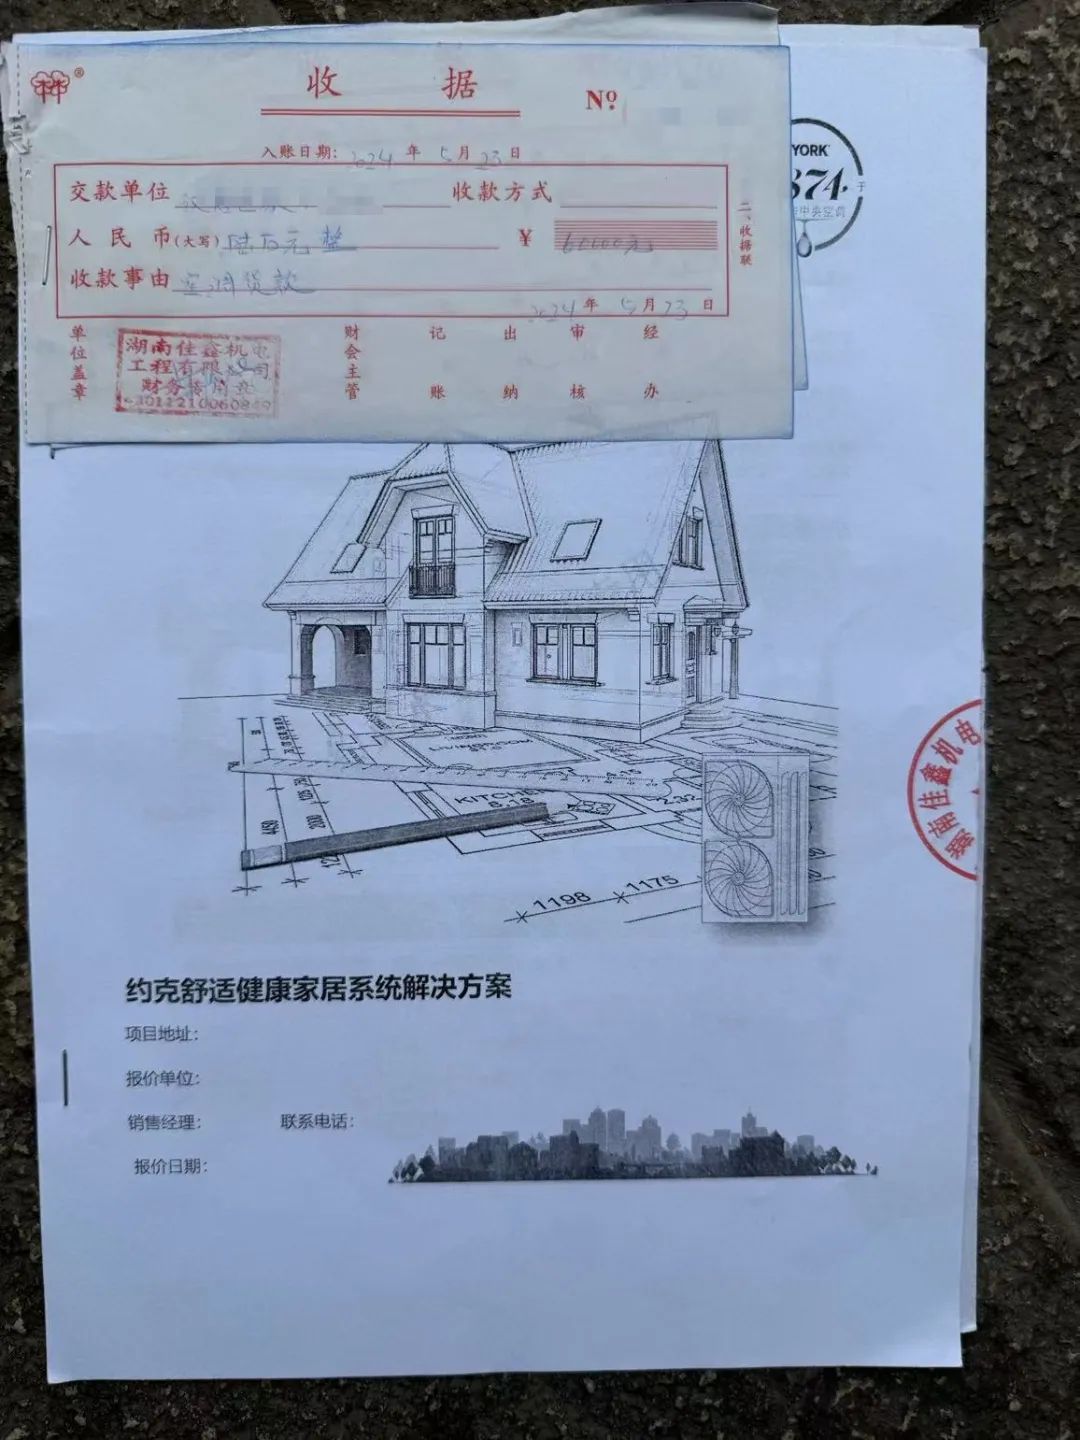 收 据
Nº
入账日期: 2024 年 5月 23 日
交款单位 收款方式
人民币(大写) 陆万元整 ¥ 60000元
收款事由 空调货款
2024 年 5月 23 日
单位盖章 财会主管 记账 出纳 审核 经办
二、收据联
湖南佳鑫机电
工程有限公司
财务专用章
YORK
874
中央空调
KITCHEN
1198
1175
湖南佳鑫机电
约克舒适健康家居系统解决方案
项目地址:
报价单位:
销售经理: 联系电话:
报价日期: